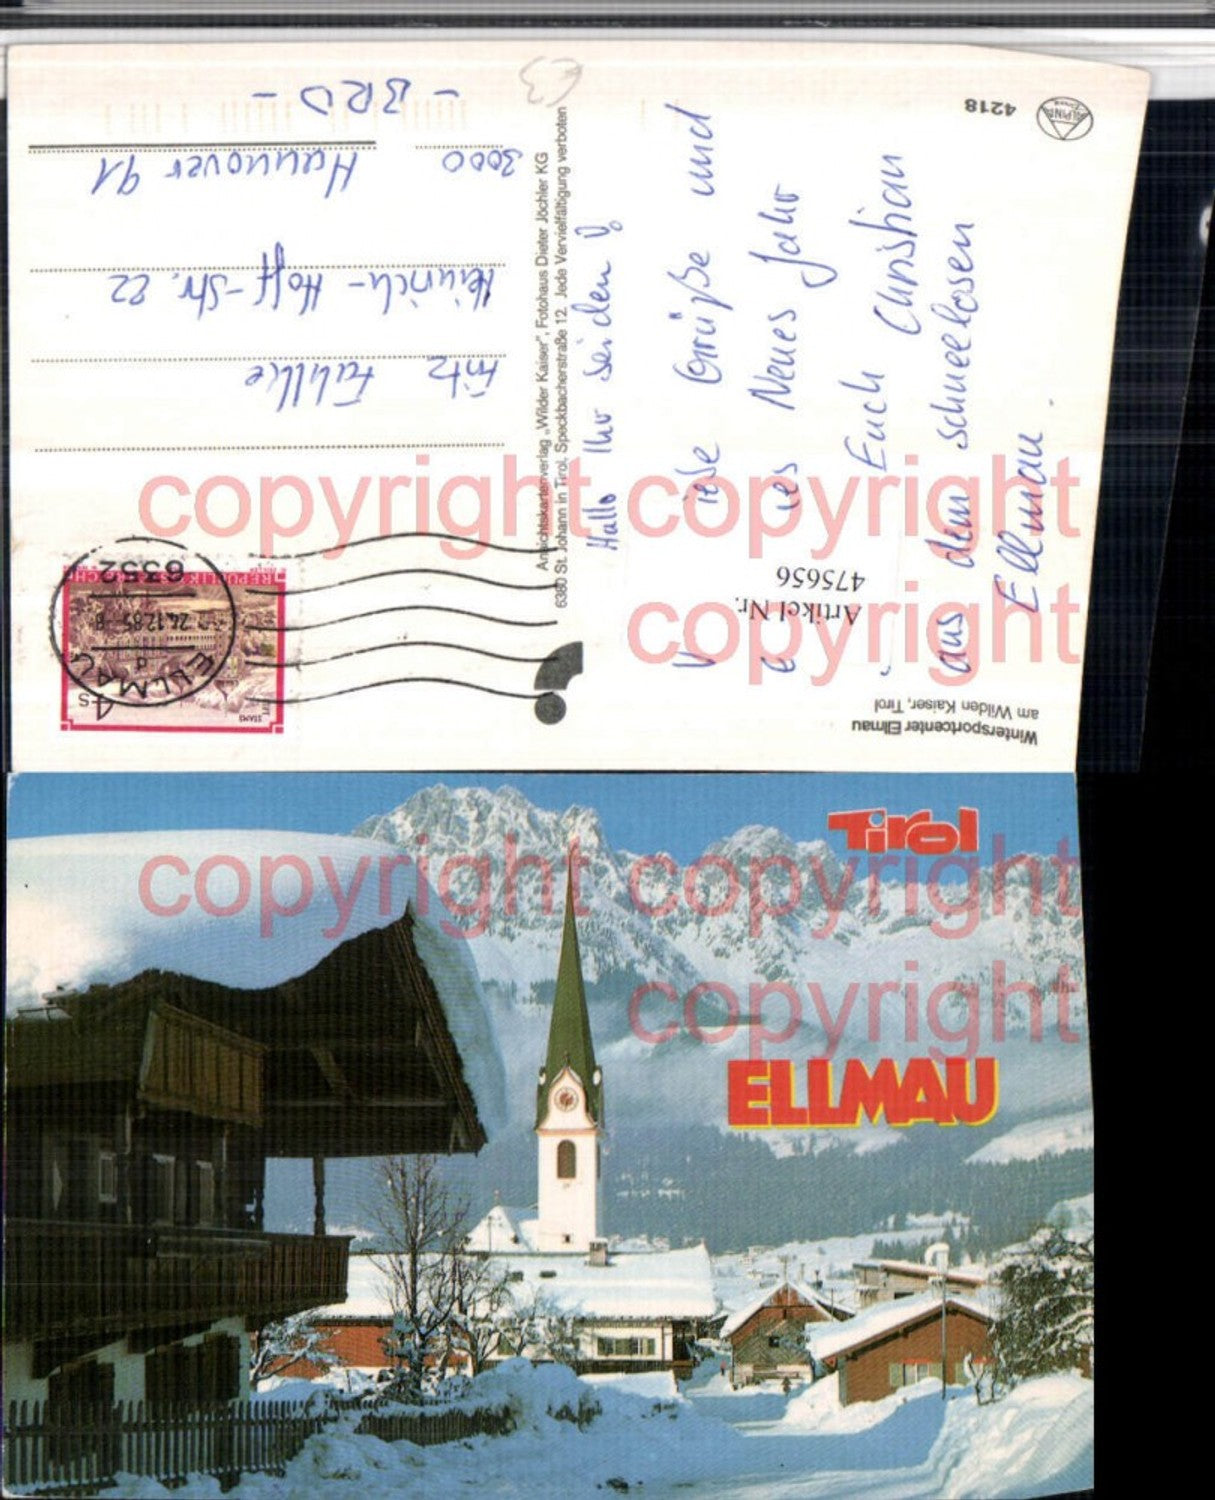 Wintersportcenter Ellmau
am Wilden Kaiser, Tirol
ALPINE
4218
Artikel Nr.
475656
Hallo Ihr beiden!
Viele Grüße und
ein gutes Neues Jahr
Euch Christian
aus dem schneelosen
Ellmau.
Ansichtskartenverlag „Wilder Kaiser", Fotohaus Dieter Jöchler KG
6380 St. Johann in Tirol, Speckbacherstraße 12. Jede Vervielfältigung verboten
€3
REPUBLIK ÖSTERREICH
STAMS
4 S
6352
24.12.85 - 8
d
ELLMAU
Fritz
Heinrich-Hoff-Str. 22
3000 Hannover 91
- BRD -
copyright copyright
copyright
Tirol
ELLMAU
copyright copyright
copyright